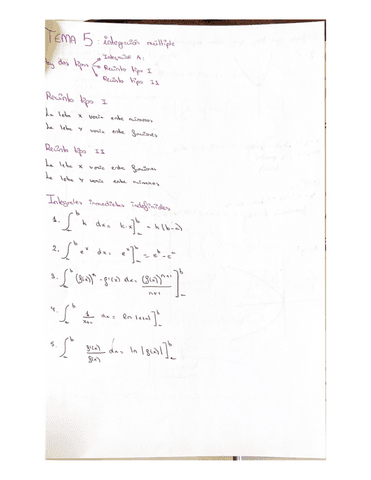 TEMA 5: integración múltiple
hay dos tipos
Recinto tipo I
Recinto tipo II
Recinto tipo I
La letra x varía entre números
La letra y varía entre funciones
Recinto tipo II
La letra x varía entre funciones
La letra y varía entre números
Integrales inmediatas indefinidas
1. ∫_a^b k dx = k·x]_a^b = k(b-a)
2. ∫_a^b e^x dx = e^x]_a^b = e^b - e^a
3. ∫_a^b (f(x))^n · f'(x) dx = (f(x))^{n+1} / n+1 ]_a^b
4. ∫_a^b 1/x+a dx = ln|x+a|]_a^b
5. ∫_a^b f'(x)/f(x) dx = ln|f(x)|]_a^b